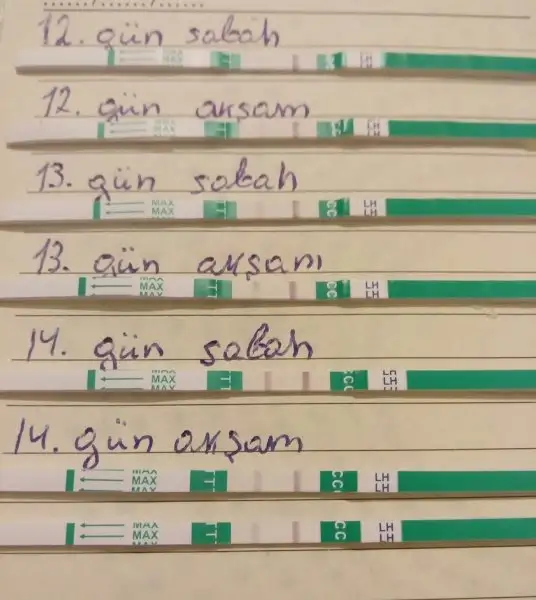 12. gün sabah
MAX
MAX
T
LH
12. gün akşam
MAX
MAX
T
LH
LH
13. gün sabah
MAX
MAX
TT
CC
LH
LH
13. gün akşam
MAX
MAX
MAX
TT
CC
LH
LH
14. gün sabah
MAX
MAX
TT
CC
LH
LH
14. gün akşam
MAX
MAX
MAX
TT
CC
LH
LH
MAX
MAX
MAX
TT
CC
LH
LH